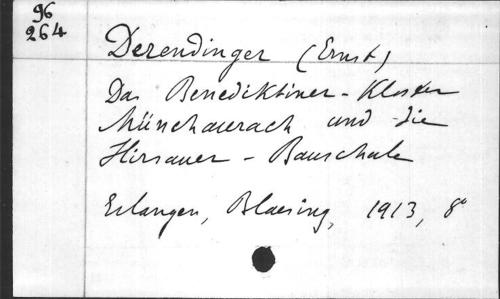 96
264
Derendinger (Ernst)
Das Benediktiner-Kloster
Münchaurach und die
Hirsauer-Bauschule
Erlangen, Blaesing, 1913, 8°